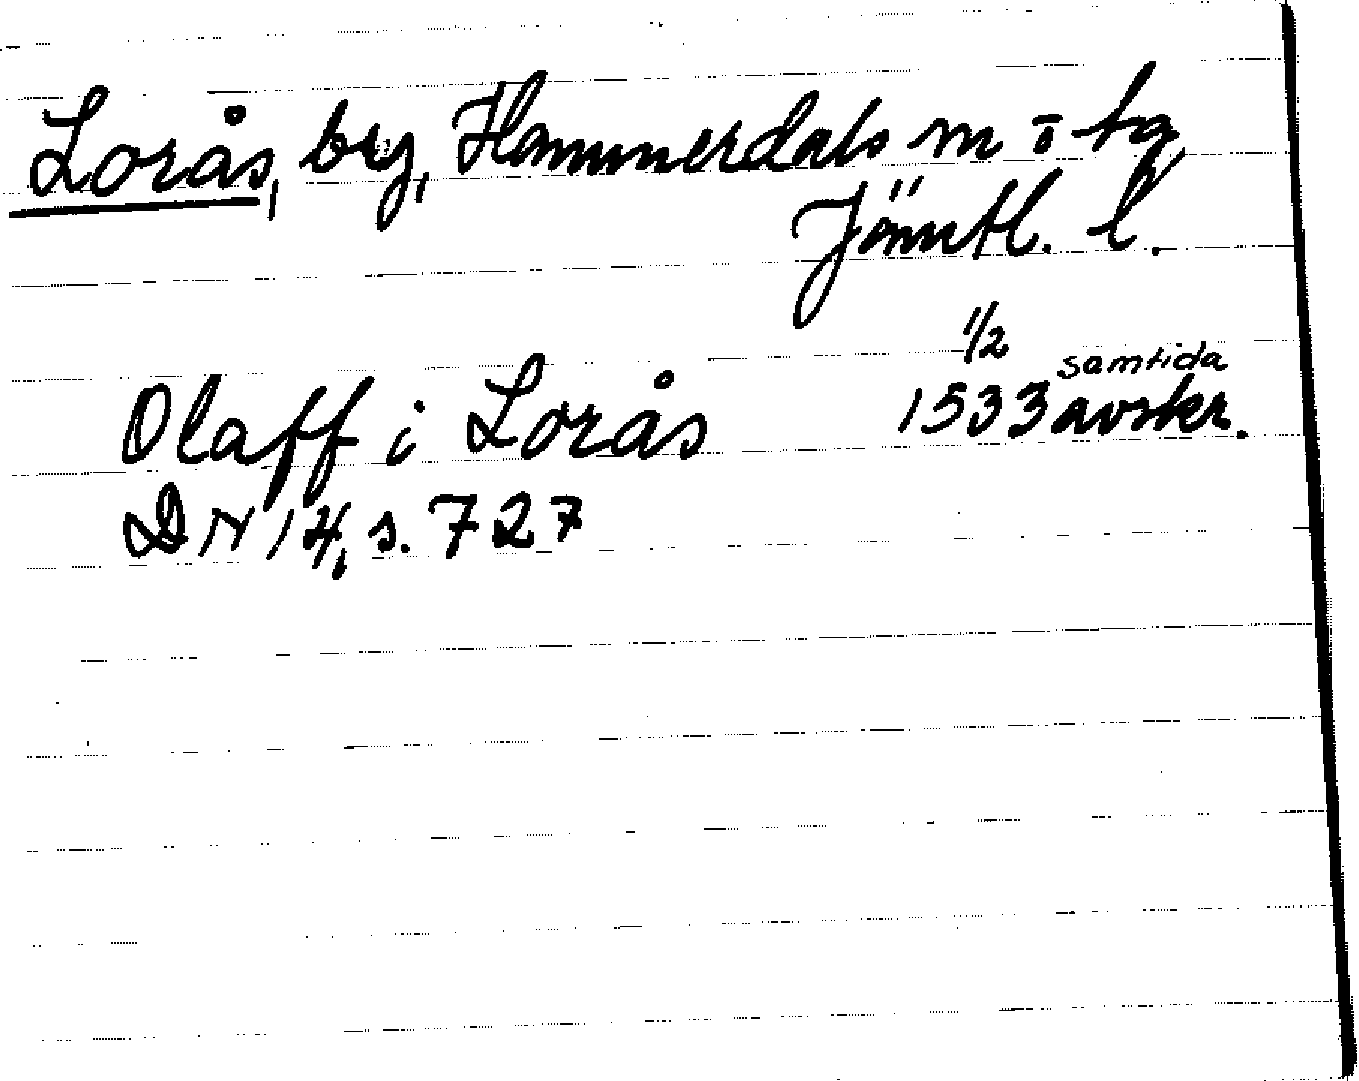 Lorås, by, Hammerdals sn o tg,
Jämtl. l.
Olaff i Lorås 1/2 1533 samtida avskr.
DN 14, s. 727